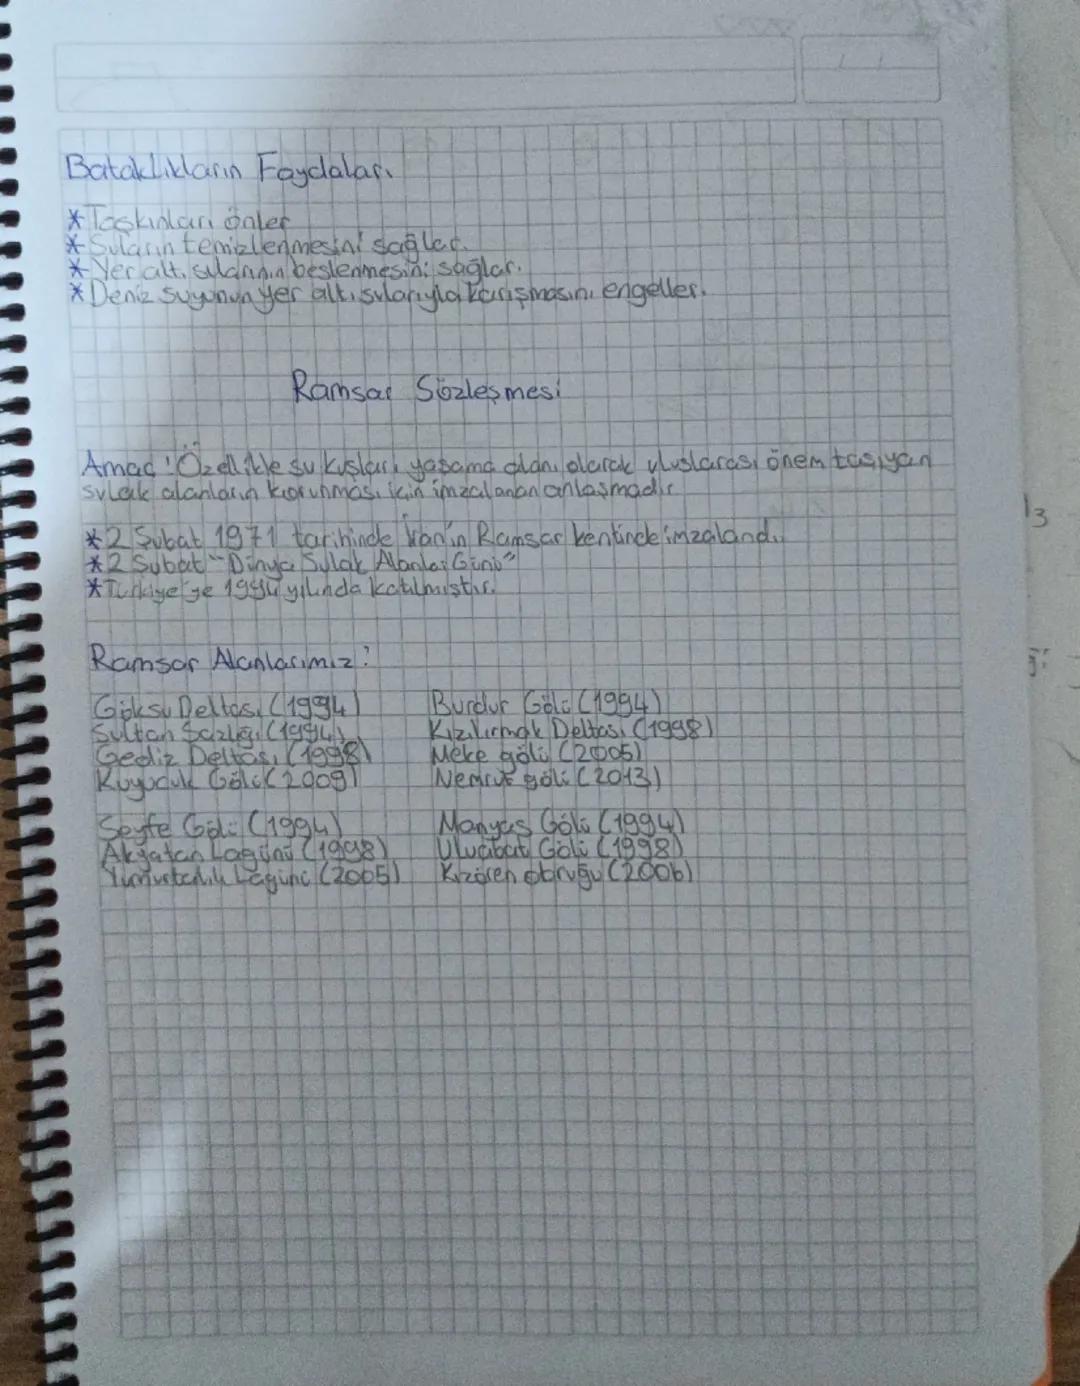 Bataklıkların Faydaları
* Taşkınları önler
* Suların temizlenmesini sağlar.
* Yer altı sularının beslenmesini sağlar.
* Deniz suyunun yer altı sularıyla karışmasını engeller.
Ramsar Sözleşmesi
Amaç: Özellikle su kuşları yaşama alanı olarak uluslarası önem taşıyan
sulak alanların korunması için imzalanan anlaşmadır
* 2 Şubat 1971 tarihinde İran'ın Ramsar kentinde imzalandı.
* 2 Şubat "Dünya Sulak Alanlar Günü"
* Türkiye'ye 1994 yılında katılmıştır.
Ramsar Alanlarımız:
Göksu Deltası (1994) Burdur Gölü (1994)
Sultan Sazlığı (1994) Kızılırmak Deltası (1998)
Gediz Deltası (1998) Meke gölü (2005)
Kuyucuk Gölü (2009) Nemrut gölü (2013)
Seyfe Gölü (1994) Manyas Gölü (1994)
Akyatan Lagünü (1998) Uluabat Gölü (1998)
Yumurtalık Lagünü (2005) Kızören obruğu (2006)
13